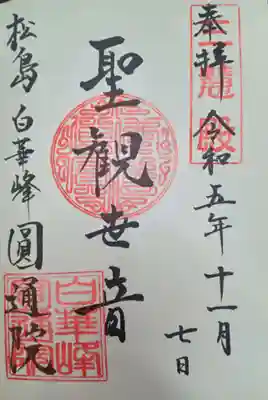 奉拝 令和五年十一月
七日
聖観世音
松島 白華峰 圓通院
三慧殿
白華峰